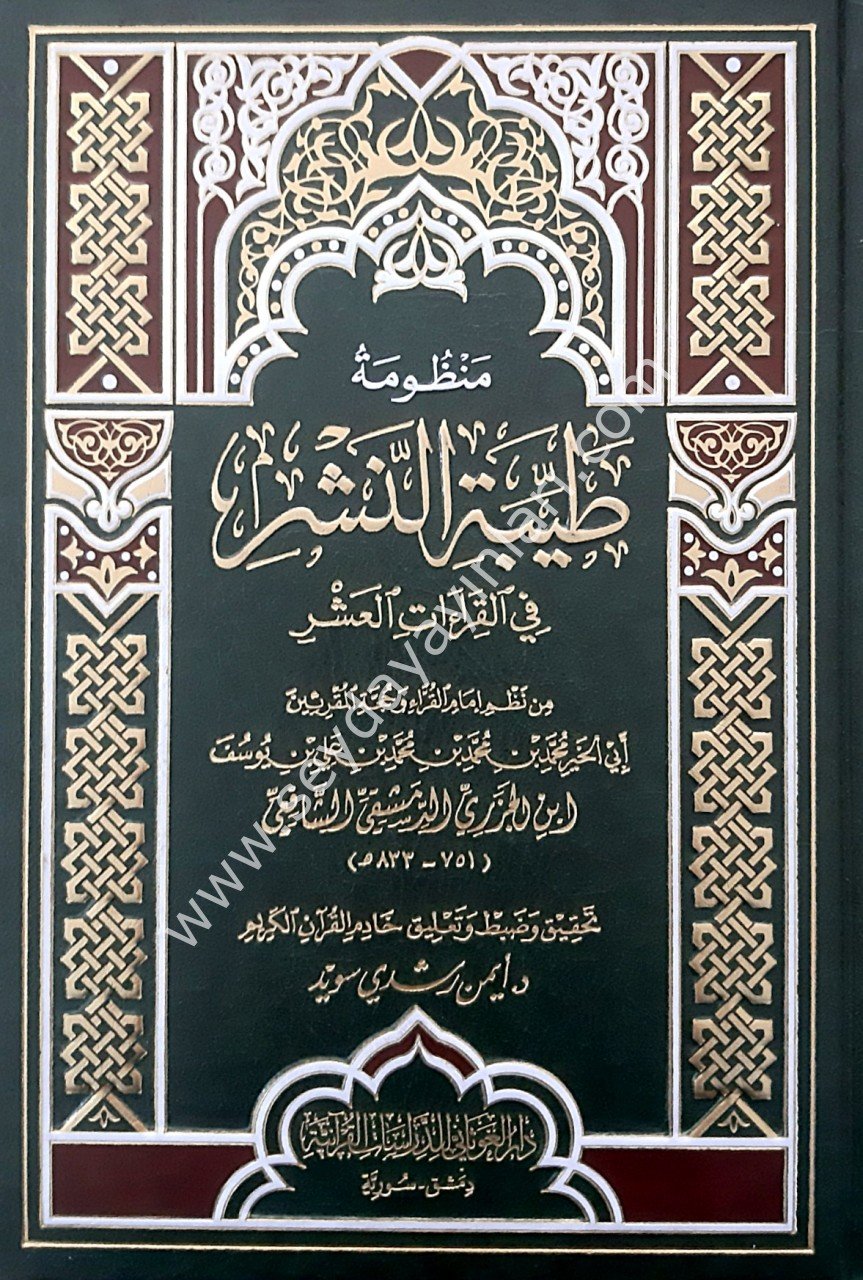 مَنْظُومَةُ
طَيِّبَةِ النَّشْرِ
فِي القِرَاءَاتِ العَشْرِ
مِن نَظْمِ إِمَامِ القُرَّاءِ وَحُجَّةِ المُقْرِئِينَ
أَبِي الخَيْرِ مُحَمَّدِ بْنِ مُحَمَّدِ بْنِ مُحَمَّدِ بْنِ عَلِيِّ بْنِ يُوسُفَ
ابْنِ الجَزَرِيِّ الدِّمَشْقِيِّ الشَّافِعِيِّ
(٧٥١ - ٨٣٣هـ)
تَحْقِيق وَضَبْط وَتَعْلِيق خَادِم القُرْآنِ الكَرِيمِ
د. أيمن رشدي سويد
دَارُ الغَوْثَانِي لِلدِّرَاسَاتِ القُرْآنِيَّة
دِمَشْق - سُورِيَّة
www.seydayayinlari.com